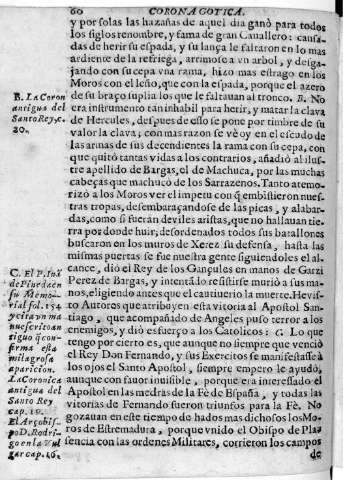 60 CORONA GOTICA.
y por solas las hazañas de aquel dia ganò para todos
los siglos renombre, y fama de gran Cavallero: cansa-
das de herir su espada, y su lança le faltaron en lo mas
ardiente de la refriega, arrimose a vn arbol, y desga-
jando con su cepa vna rama, hizo mas estrago en los
Moros con el leño, que con la espada, porque el azero
de su braço suplia los que le faltauan al tronco. B. No
era instrumento tan inhabil para herir, y matar la clava
de Hercules, despues de esso se pone por timbre de su
valor la clava; con mas razon se vè oy en el escudo de
las armas de sus decendientes la rama con su cepa, con
que quitò tantas vidas a los contrarios, añadiò al ilus-
tre apellido de Bargas, el de Machuca, por las muchas
cabeças que machucò de los Sarrazenos. Tanto atemo-
rizò a los Moros ver el impetu con q̃ embistieron nues-
tras tropas, desembaraçandose de las picas, y alabar-
das, como si fueran deviles aristas, que no hallauan tie-
rra por donde huir; desordenados todos sus batallones
buscaron en los muros de Xerez su defensa, hasta las
mismas puertas se fue nuestra gente siguiendoles el al-
cance, diò el Rey de los Gançules en manos de Garzi
Perez de Bargas, y intentãdo resistirse muriò a sus ma-
nos, eligiendo antes que el cautiuerio la muerte. He vis-
to Autores que atribuyen esta vitoria al Apostol San-
tiago, que acompañado de Angeles puso terror a los
enemigos, y diò esfuerço a los Catolicos: C. Lo que
tengo por cierto es, que aunque no siempre que venciò
el Rey Don Fernando, y sus Exercitos se manifestasse à
los ojos el Santo Apostol, siempre empero le ayudò,
aunque con fauor inuisible, porque era interessado el
Apostol en las medras de la Fè de España, y todas las
vitorias de Fernando fueron triunfos para la Fè. No
gozauan en este tiempo de hados mas dichosos los Mo-
ros de Estremadura, porque vnido el Obispo de Pla-
sencia con las ordenes Militares, corrieron los campos
de
B. La Coron
antigua del
Santo Rey, c.
20.
C. El P.
de Pineda en
su Memo-
rial fol. 134
y cita vn ma
nuescrito an
tiguo q̃ con-
firma esta
milagrosa
aparicion.
La Coronica
antigua del
Santo Rey
cap. 19.
El Arçobis-
po D. Rodri-
go en la Vul
gar cap. 16.